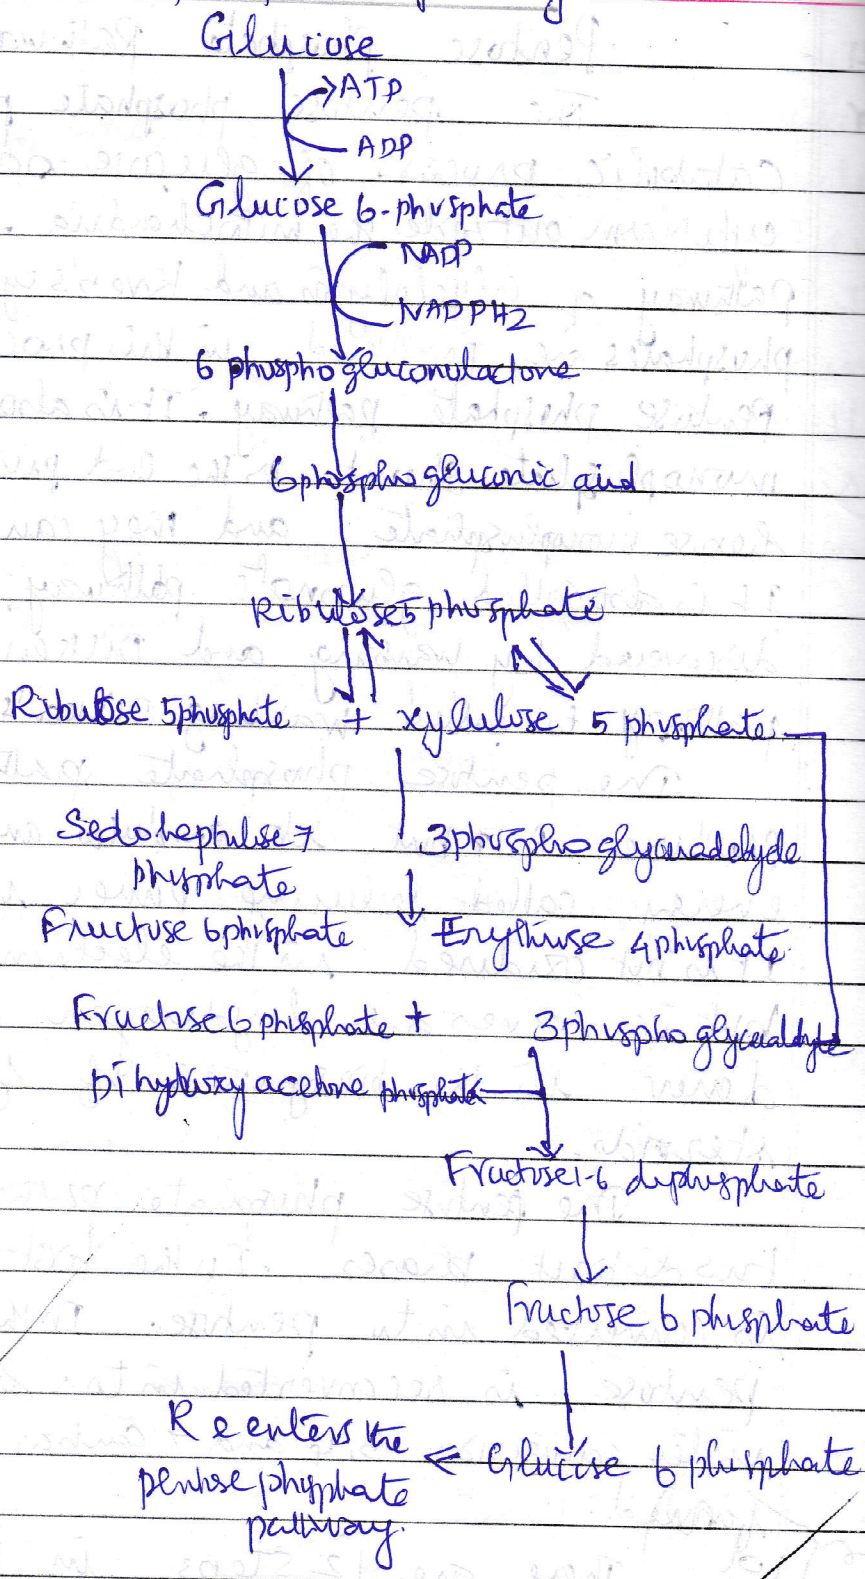 Glucose
ATP
ADP
Glucose 6-phosphate
NADP
NADPH2
6 phosphogluconolactone
6phospho gluconic acid
Ribulose5 phosphate
Ribulose 5phosphate + xylulose 5 phosphate
Sedoheptulse 7 3phospho glyceraldehyde
phosphate
Fructose 6phosphate Erythrose 4phosphate
Fructose 6 phosphate + 3phospho glyceraldhyde
Dihydroxy acetone phosphate
Fructose1-6 diphosphate
Fructose 6 phosphate
Re enters the Glucose 6 phosphate
pentose phosphate
pathway.